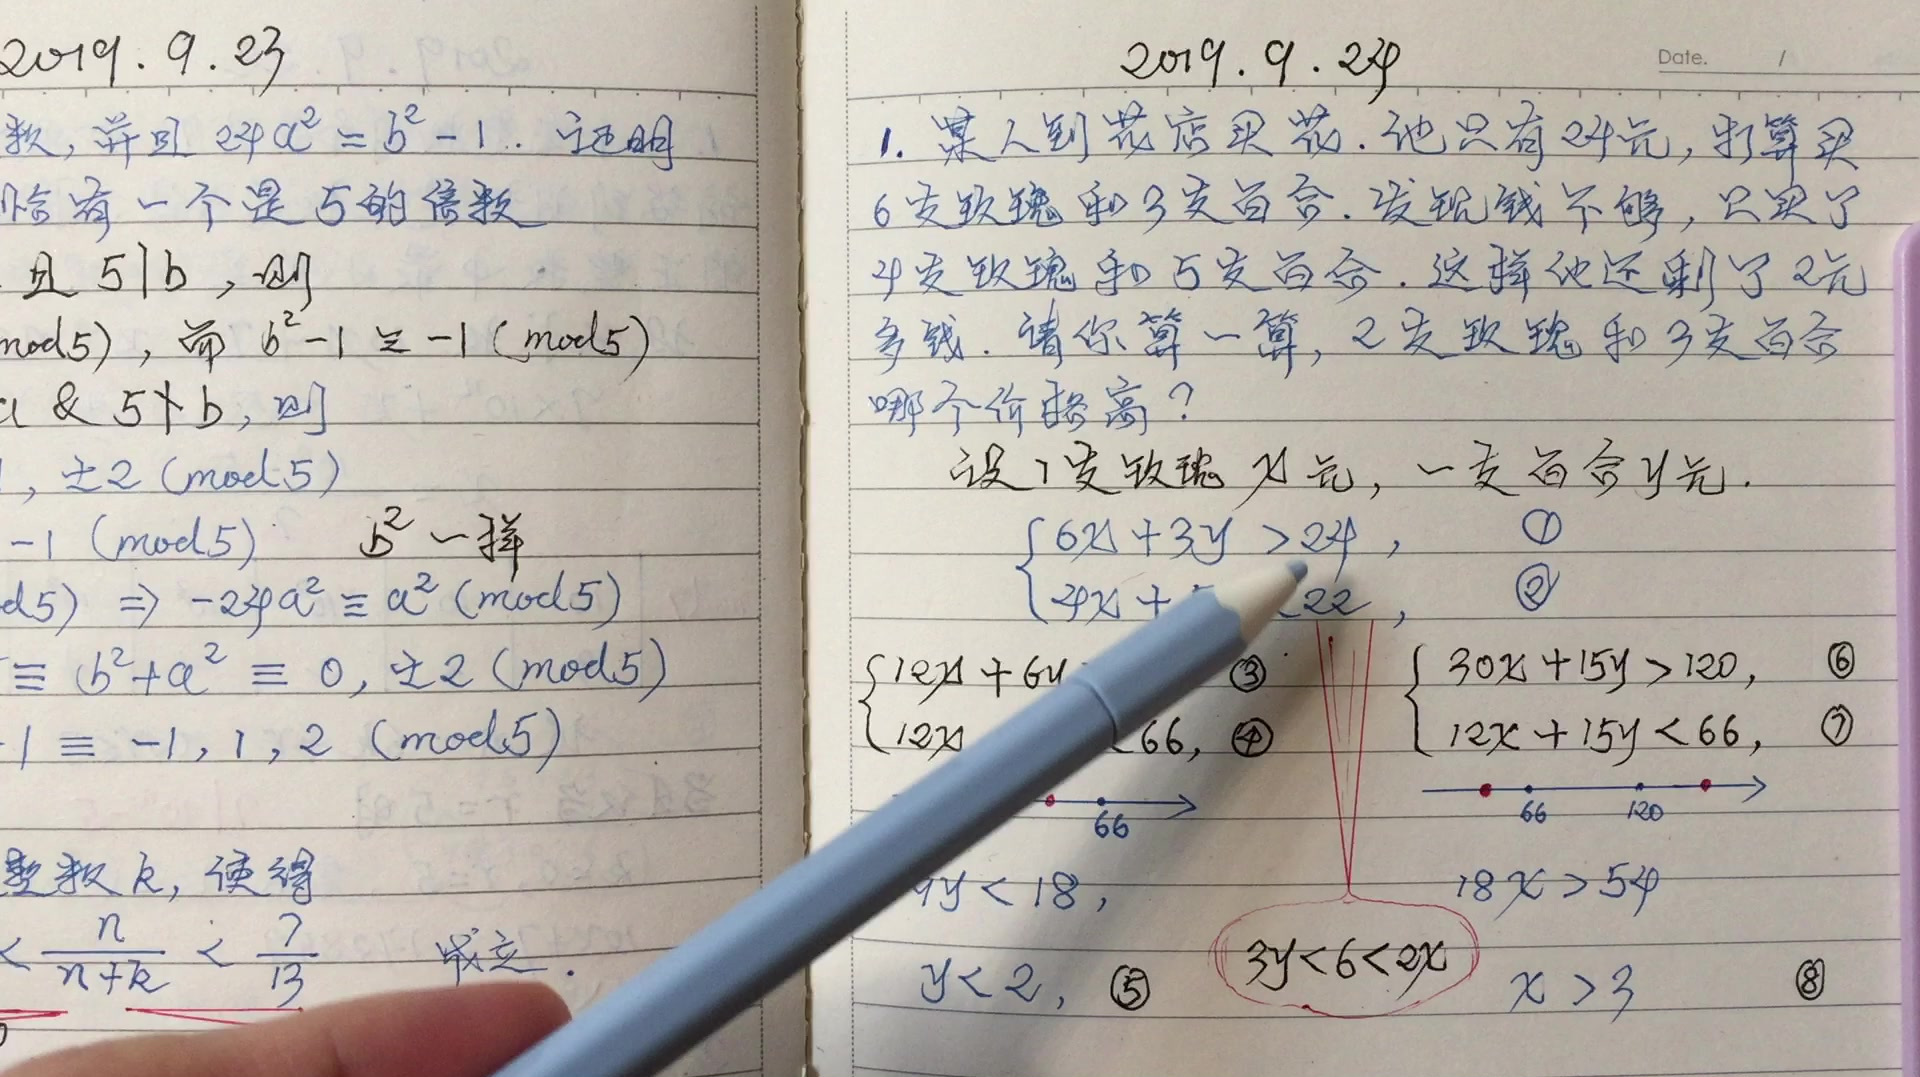 2019.9.23
数,并且 24a² = b² - 1. 证明
恰有一个是5的倍数
且 5|b, 则
mod5), 而 b²-1 ≡ -1 (mod5)
a & 5∤b, 则
1, ±2 (mod5)
-1 (mod5) b²一样
d5) ⇒ -24a² ≡ a² (mod5)
≡ b²+a² ≡ 0, ±2 (mod5)
-1 ≡ -1, 1, 2 (mod5)
整数k, 使得
< n/(n+k) < 7/13 成立.
2019.9.24
Date. /
1. 某人到花店买花. 他只有24元, 打算买
6支玫瑰和3支百合. 发现钱不够, 只买了
4支玫瑰和5支百合. 这样他还剩了2元
多钱. 请你算一算, 2支玫瑰和3支百合
哪个价格高?
设1支玫瑰x元, 一支百合y元.
6x+3y>24, ①
4x+ <22, ②
12x+6y ③
12x <66, ④
66
9y<18,
y<2, ⑤
3y<6<2x
30x+15y>120, ⑥
12x+15y<66, ⑦
66 120
18x>54
x>3 ⑧